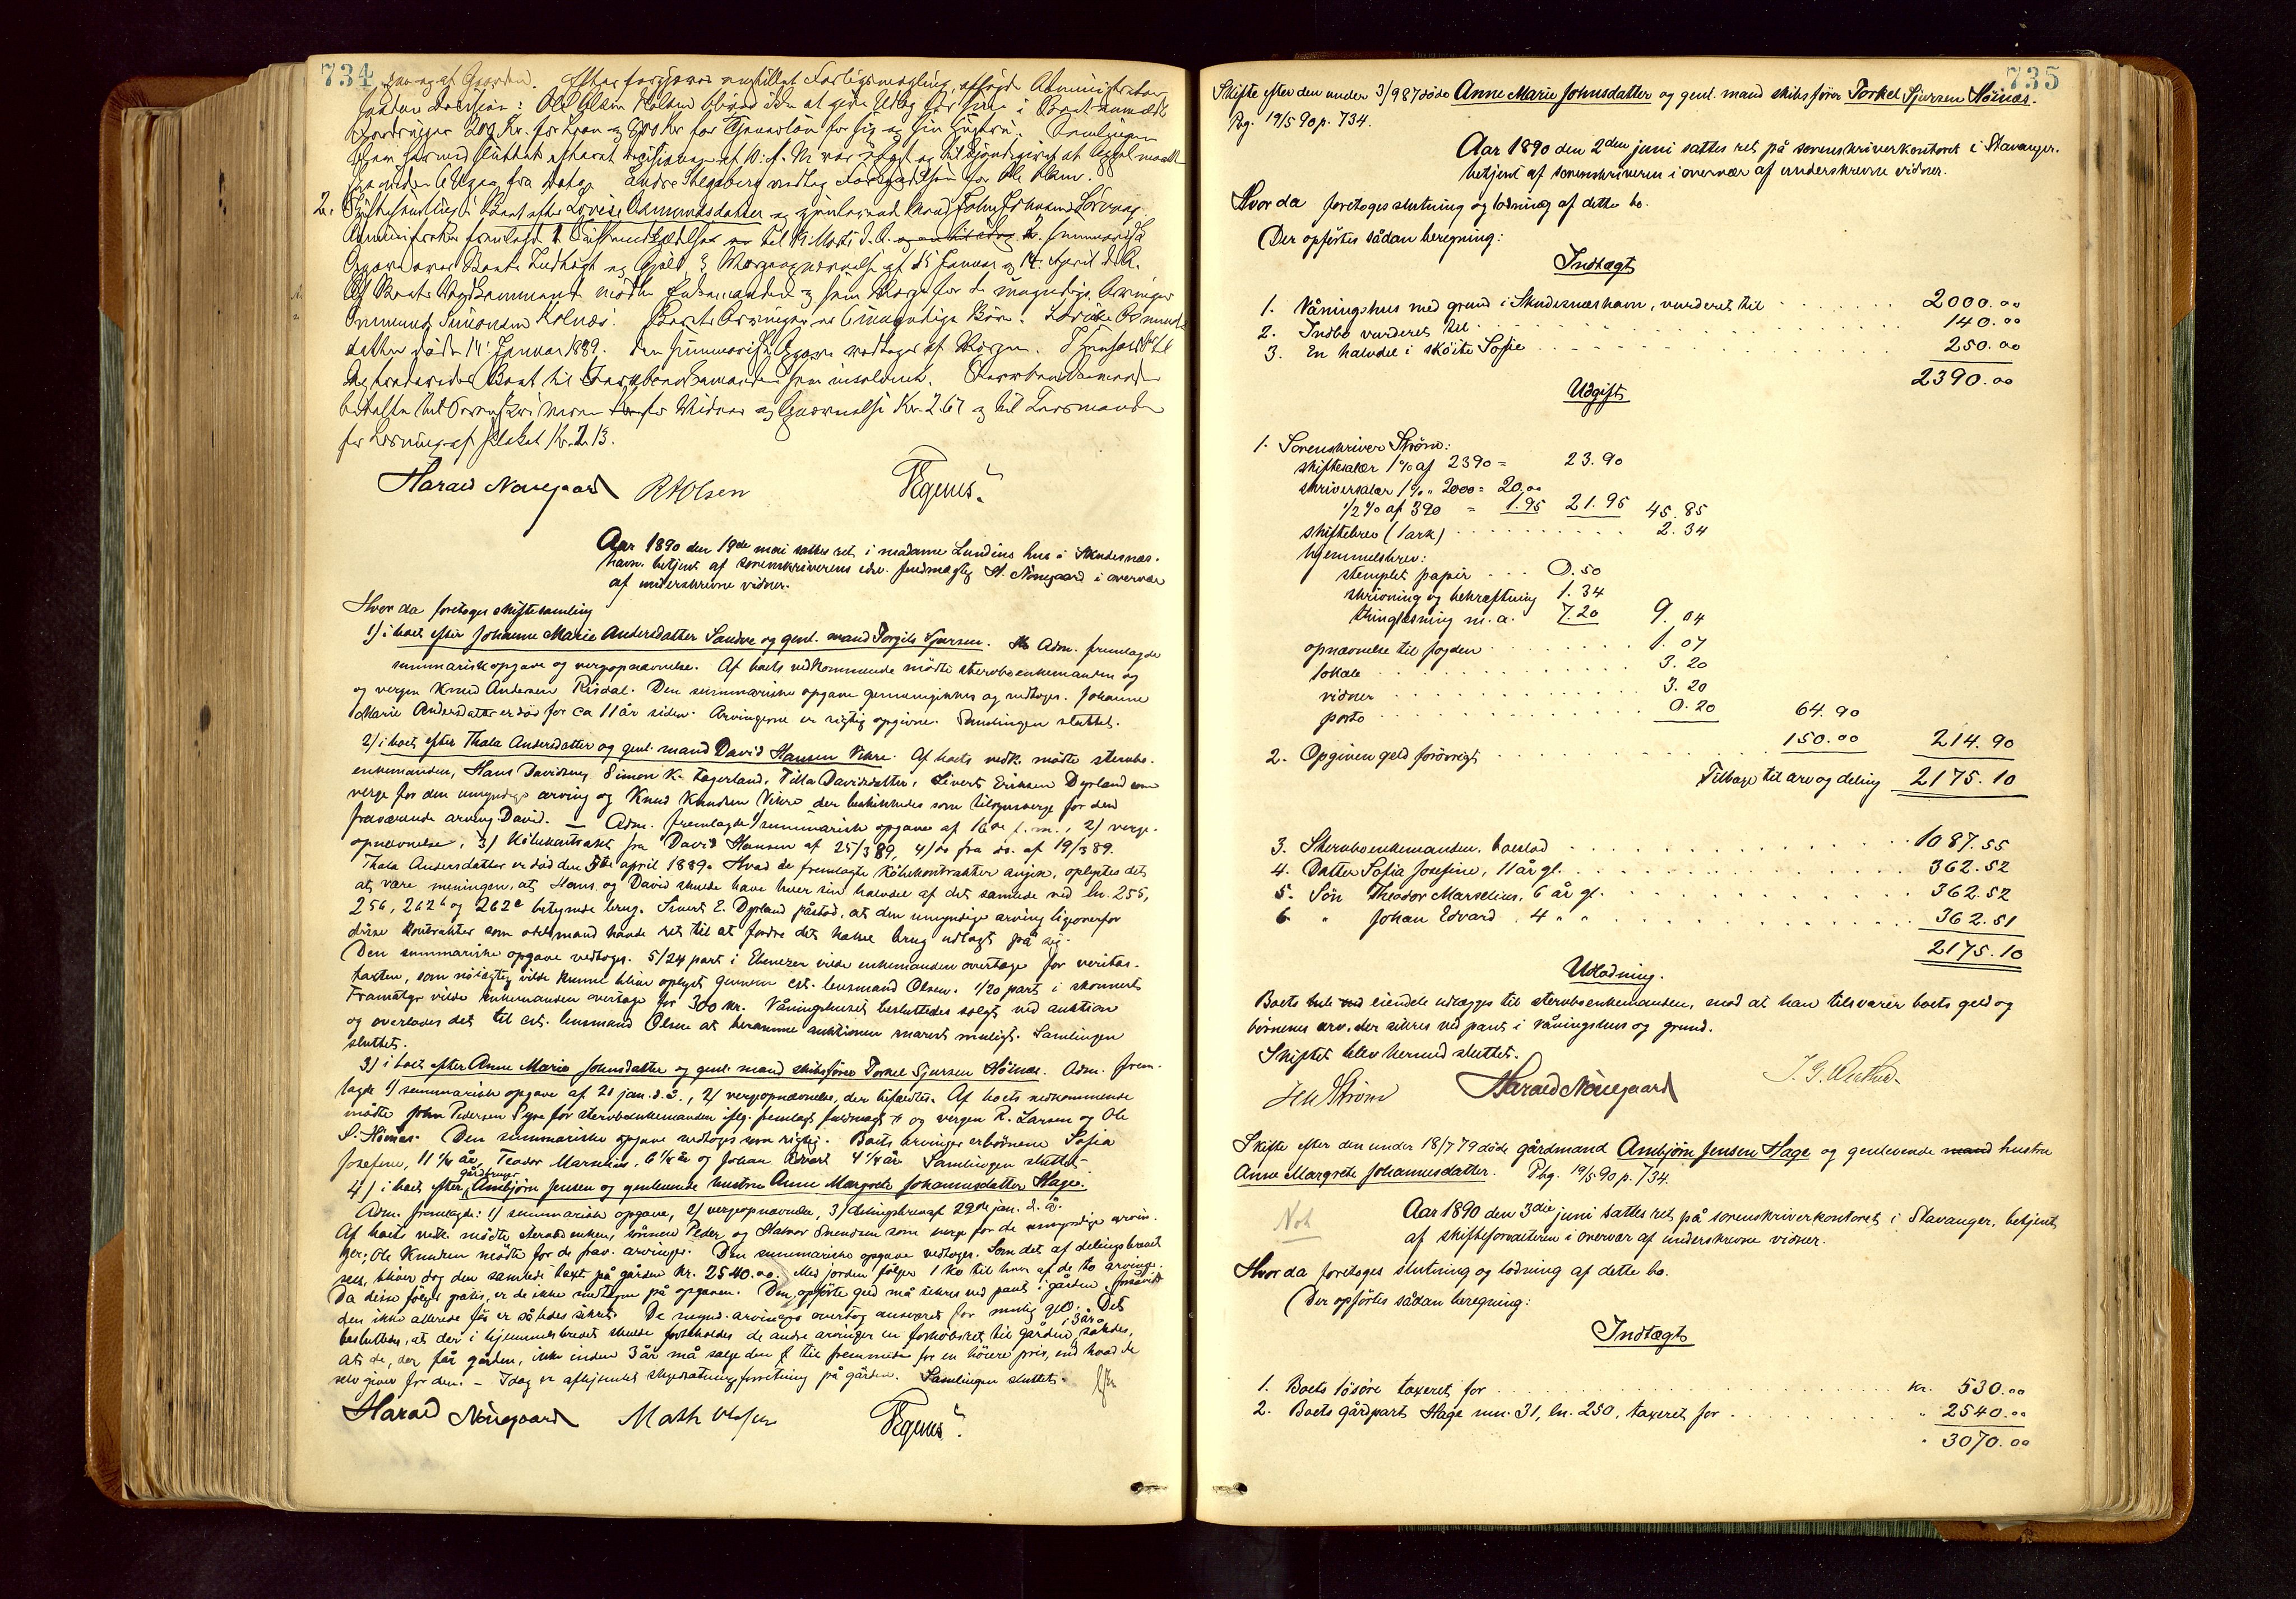 734
af Gaarden. Efter forgjæves anstillet Forligsmægling, afsagde Administrator
saadan Decision: Ole Olsen bliver ikke at give Udlæg for sine i Boet anmeldte
Fordringer 200 Kr. for Laan og 800 Kr for Tjenerløn for sig og sin Hustru. Samlingen
blev hermed sluttet
2. Skiftesamling i Boet efter Lovise Osmundsdatter og gjenlevende Mand John Johnsen Sørvaag.
Administrator fremlagde 1. til 12 Marts d. A. 2. summarisk
Opgave over Boets Indtægt og Gjæld, 3. Værgeopnævnelse af 25 Januar og 14. April d. A.
Af Boets Vedkommende mødte Enkemanden og som Værge for de umyndige Arvinger
Simonsen Kolnæs. Boets Arvinger er 6 umyndige Børn. Lovise Osmunds-
datter døde 14. Januar 1889. Den summariske Opgave vedtoges af Værgen. I Henhold til
Boet til Stervboenkemanden som insolvent. Stervboenkemanden
betalte til Sorenskriveren for Vidner og Opnævnelse Kr. 2.67 og til Lensmanden
for Læsning af Plakat Kr. 2.13.
Harald Nørregaard RAOlsen
Aar 1890 den 19de mai sattes ret i madame Lundins hus i Skudesnæs-
havn betjent af sorenskriverens edsv. fuldmægtig H. Nørregaard i overvær
af underskrevne vidner.
Hvor da foretoges skiftesamling
1) i boet efter Johanne Marie Andersdatter Sandve og genl. mand Torgils Sjursen. Adm. fremlagde
summarisk opgave og vergeopnævnelse. Af boets vedkommende mødte stervboenkemanden og
og vergen Knud Andersen Risdal. Den summariske opgave gennemgikkes og vedtoges. Johanne
Marie Andersdatter er død for ca 11 år siden. Arvingerne er rigtig opgivne. Samlingen sluttet.
2) i boet efter Thala Andersdatter og genl. mand David Hansen Vikre. Af boets vedk. mødte stervbo-
enkemanden, Hans Davidsen, Simon K. Fagerland, Tilla Davidsdatter, Sivert Eriksen Dyrland som
verge for den umyndige arving og Knud Knudsen Vikre der beskikkedes som tilsynsverge for den
fraværende arving David. — Adm. fremlagde 1) summarisk opgave af 16de f. m., 2) verge-
opnævnelse, 3) Købekontrakt fra David Hansen af 25/3 89, 4) do fra do. af 19/3 89.
Thala Andersdatter er død den 5te april 1889. Hvad de fremlagte købekontrakter angik, oplystes det
at være meningen, at Hans og David skulde have hver sin halvdel af det samlede ved ln. 255,
256, 262 b og 262 c betegnede brug. Sivert E. Dyrland påstod, at den umyndige arving ligeoverfor
disse kontrakter som odelsmand havde ret til at fordre det halve brug udlagt på sig.
Den summariske opgave vedtoges. 5/24 part i Ebenezer vilde enkemanden overtage for veritas-
taxten, som nøiagtig vilde kunne blive oplyst gennem cst. lensmand Olsen. 1/20 part i skonnert
Framatgr vilde enkemanden overtage for 300 kr. Våningshuset besluttedes solgt ved auktion
og overlodes det til cst. lensmand Olsen at beramme auktionen snarest muligt. Samlingen
sluttet.
3) i boet efter Anne Marie Johnsdatter og genl. mand skibsfører Torkel Sjursen Höinæs. Adm. frem-
lagde 1) summarisk opgave af 21 jan. d. å., 2) vergeopnævnelse, der bifaldtes. Af boets vedkommende
mødte John Pedersen Syre for stervboenkemanden iflg. fremlagt fuldmagt og vergen R. Larsen og Ole
S. Höinæs. Den summariske opgave vedtoges som rigtig. Boets arvinger er börnene Sofia
Josefine, 11 1/4 år, Teodor Marselius, 6 1/4 år og Johan Edvard 4 1/4 år. Samlingen sluttet.
4) i boet efter gårdbruger Ambjörn Jensen og genlevende hustru Anne Margrete Johannesdatter Hage.
Adm. fremlagde: 1) summarisk opgave, 2) vergeopnævnelse, 3) delingsbrev af 29de jan. d. å.
Af boets vedk. mødte stervboenken, sönnen Peder og Halvor Svendsen som verge for de umyndige arvin-
ger; Ole Knudsen mødte for de frav. arvinger. Den summariske opgave vedtoges. Som det af delingsbrevet
sees, bliver dog den samlede taxt på gården kr. 2540.00. Med jorden fölger 1 ko til hver af de to arvinge.
Da disse fölger gratis, er de ikke medtagne på opgaven. Den opförte gæld må sikres ved pant i gården, forsåvidt
den ikke allerede för er således sikret. De mynd. arvinger overtog ansvaret for mulig gæld. Det
besluttedes, at der i hjemmelsbrevet skulde forbeholdes de andre arvinger en forköbsret til gården i 3 år således,
at de, der får gården, ikke inden 3 år må sælge den til fremmede for en höiere pris, end hvad de
selv giver for den. — Idag er afhjemlet skyldsætningsforretning på gården. Samlingen sluttet.
Harald Nørregaard Math Olsen
735
Skifte efter den under 3/9 87 døde Anne Marie Johnsdatter og genl. mand skibsfører Torkel Sjursen Höinæs.
Phg. 19/5 90 p. 734.
Aar 1890 den 2den juni sattes ret på sorenskriverkontoret i Stavanger.
betjent af sorenskriveren i overvær af underskrevne vidner.
Hvor da foretoges slutning og lodning af dette bo.
Der opførtes sådan beregning:
Indtægt
1. Våningshus med grund i Skudesnæshavn, vurderet til 2000.00
2. Indbo vurderet til 140.00
3. En halvdel i sköite Sofie 250.00
2390.00
Udgift
1. Sorenskriver Strøm:
skiftesalær 1% af 2390 = 23.90
skriversalær 1% " 2000 = 20.00
1/2 % af 390 = 1.95 21.95 45.85
skiftebrev (1 ark) 2.34
hjemmelsbrev:
stemplet papir 0.50
skrivning og bekræftning 1.34
thinglæsning m. a. 7.20 9.04
opnævnelse til fogden 1.07
lokale 3.20
vidner 3.20
porto 0.20 64.90
2. Opgiven gæld forövrigt 150.00 214.90
Tilbage til arv og deling 2175.10
3. Stervboenkemanden, boeslod 1087.55
4. Datter Sofia Josefine, 11 år gl. 362.52
5. Sön Theodor Marselius, 6 år gl. 362.52
6 " Johan Edvard, 4 " " 362.51
2175.10
Udlodning.
Boets eiendele udlægges til stervboenkemanden, mod at han tilsvarer boets gæld og
börnenes arv, der sikres ved pant i våningshus og grund.
Skiftet blev hermed sluttet.
Strøm Harald Nørregaard
Skifte efter den under 18/7 79 døde gårdmand Ambjörn Jensen Hage og genlevende mand hustru
Anne Margrete Johannesdatter. Phg. 19/5 90 p. 734.
Not
Aar 1890 den 3die juni sattes ret på sorenskriverkontoret i Stavanger, betjent
af skifteforvalteren i overvær af underskrevne vidner.
Hvor da foretoges slutning og lodning af dette bo.
Der opførtes sådan beregning:
Indtægt
1. Boets lösöre taxeret for kr. 530.00
2. Boets gårdpart Hage mn. 31, ln. 250, taxeret for " 2540.00
" 3070.00